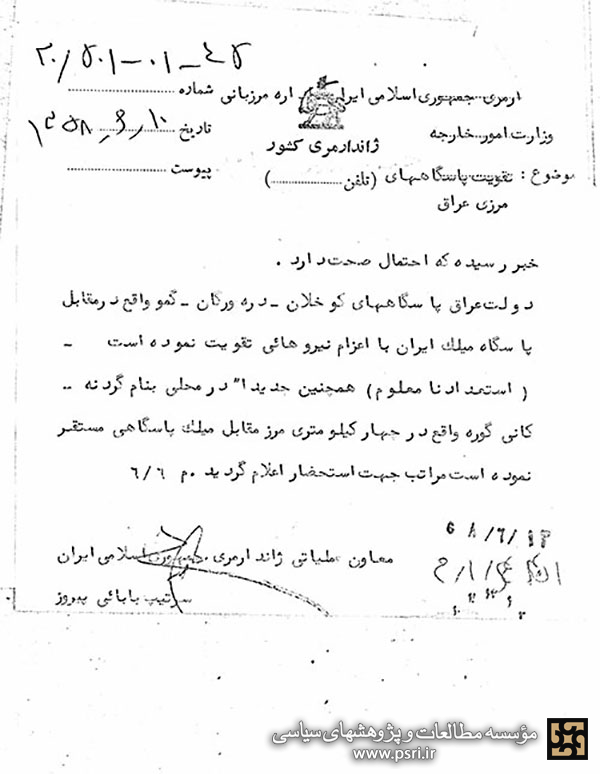 ۳۰/۵۰۱-۰۱-۴۵
ارمری جمهوری اسلامی ایران اره مرزبانی
شماره
وزارت امور خارجه
ژاندارمری کشور
تاریخ ۱۳۵۸٫۶٫۱۰
موضوع : تقویت پاسگاههای (تلفن ............)
پیوست
مرزی عراق
خبر رسیده که احتمال صحت دارد .
دولت عراق پاسگاههای کوخلان - دره ورگان - گمو واقع در مقابل
پاسگاه میلك ایران با اعزام نیروهائی تقویت نموده است -
( استعداد نا معلوم ) همچنین جدیدا" در محلی بنام گردنه -
کانی گوره واقع در چهار کیلو متری مرز مقابل میلك پاسگاهی مستقر
نموده است مراتب جهت استحضار اعلام گردید . م ۶/۶
معاون عملیاتی ژاندارمری جمهوری اسلامی ایران
سرتیپ بابائی پیروز
مؤسسه مطالعات و پژوهشهای سیاسی
www.psri.ir